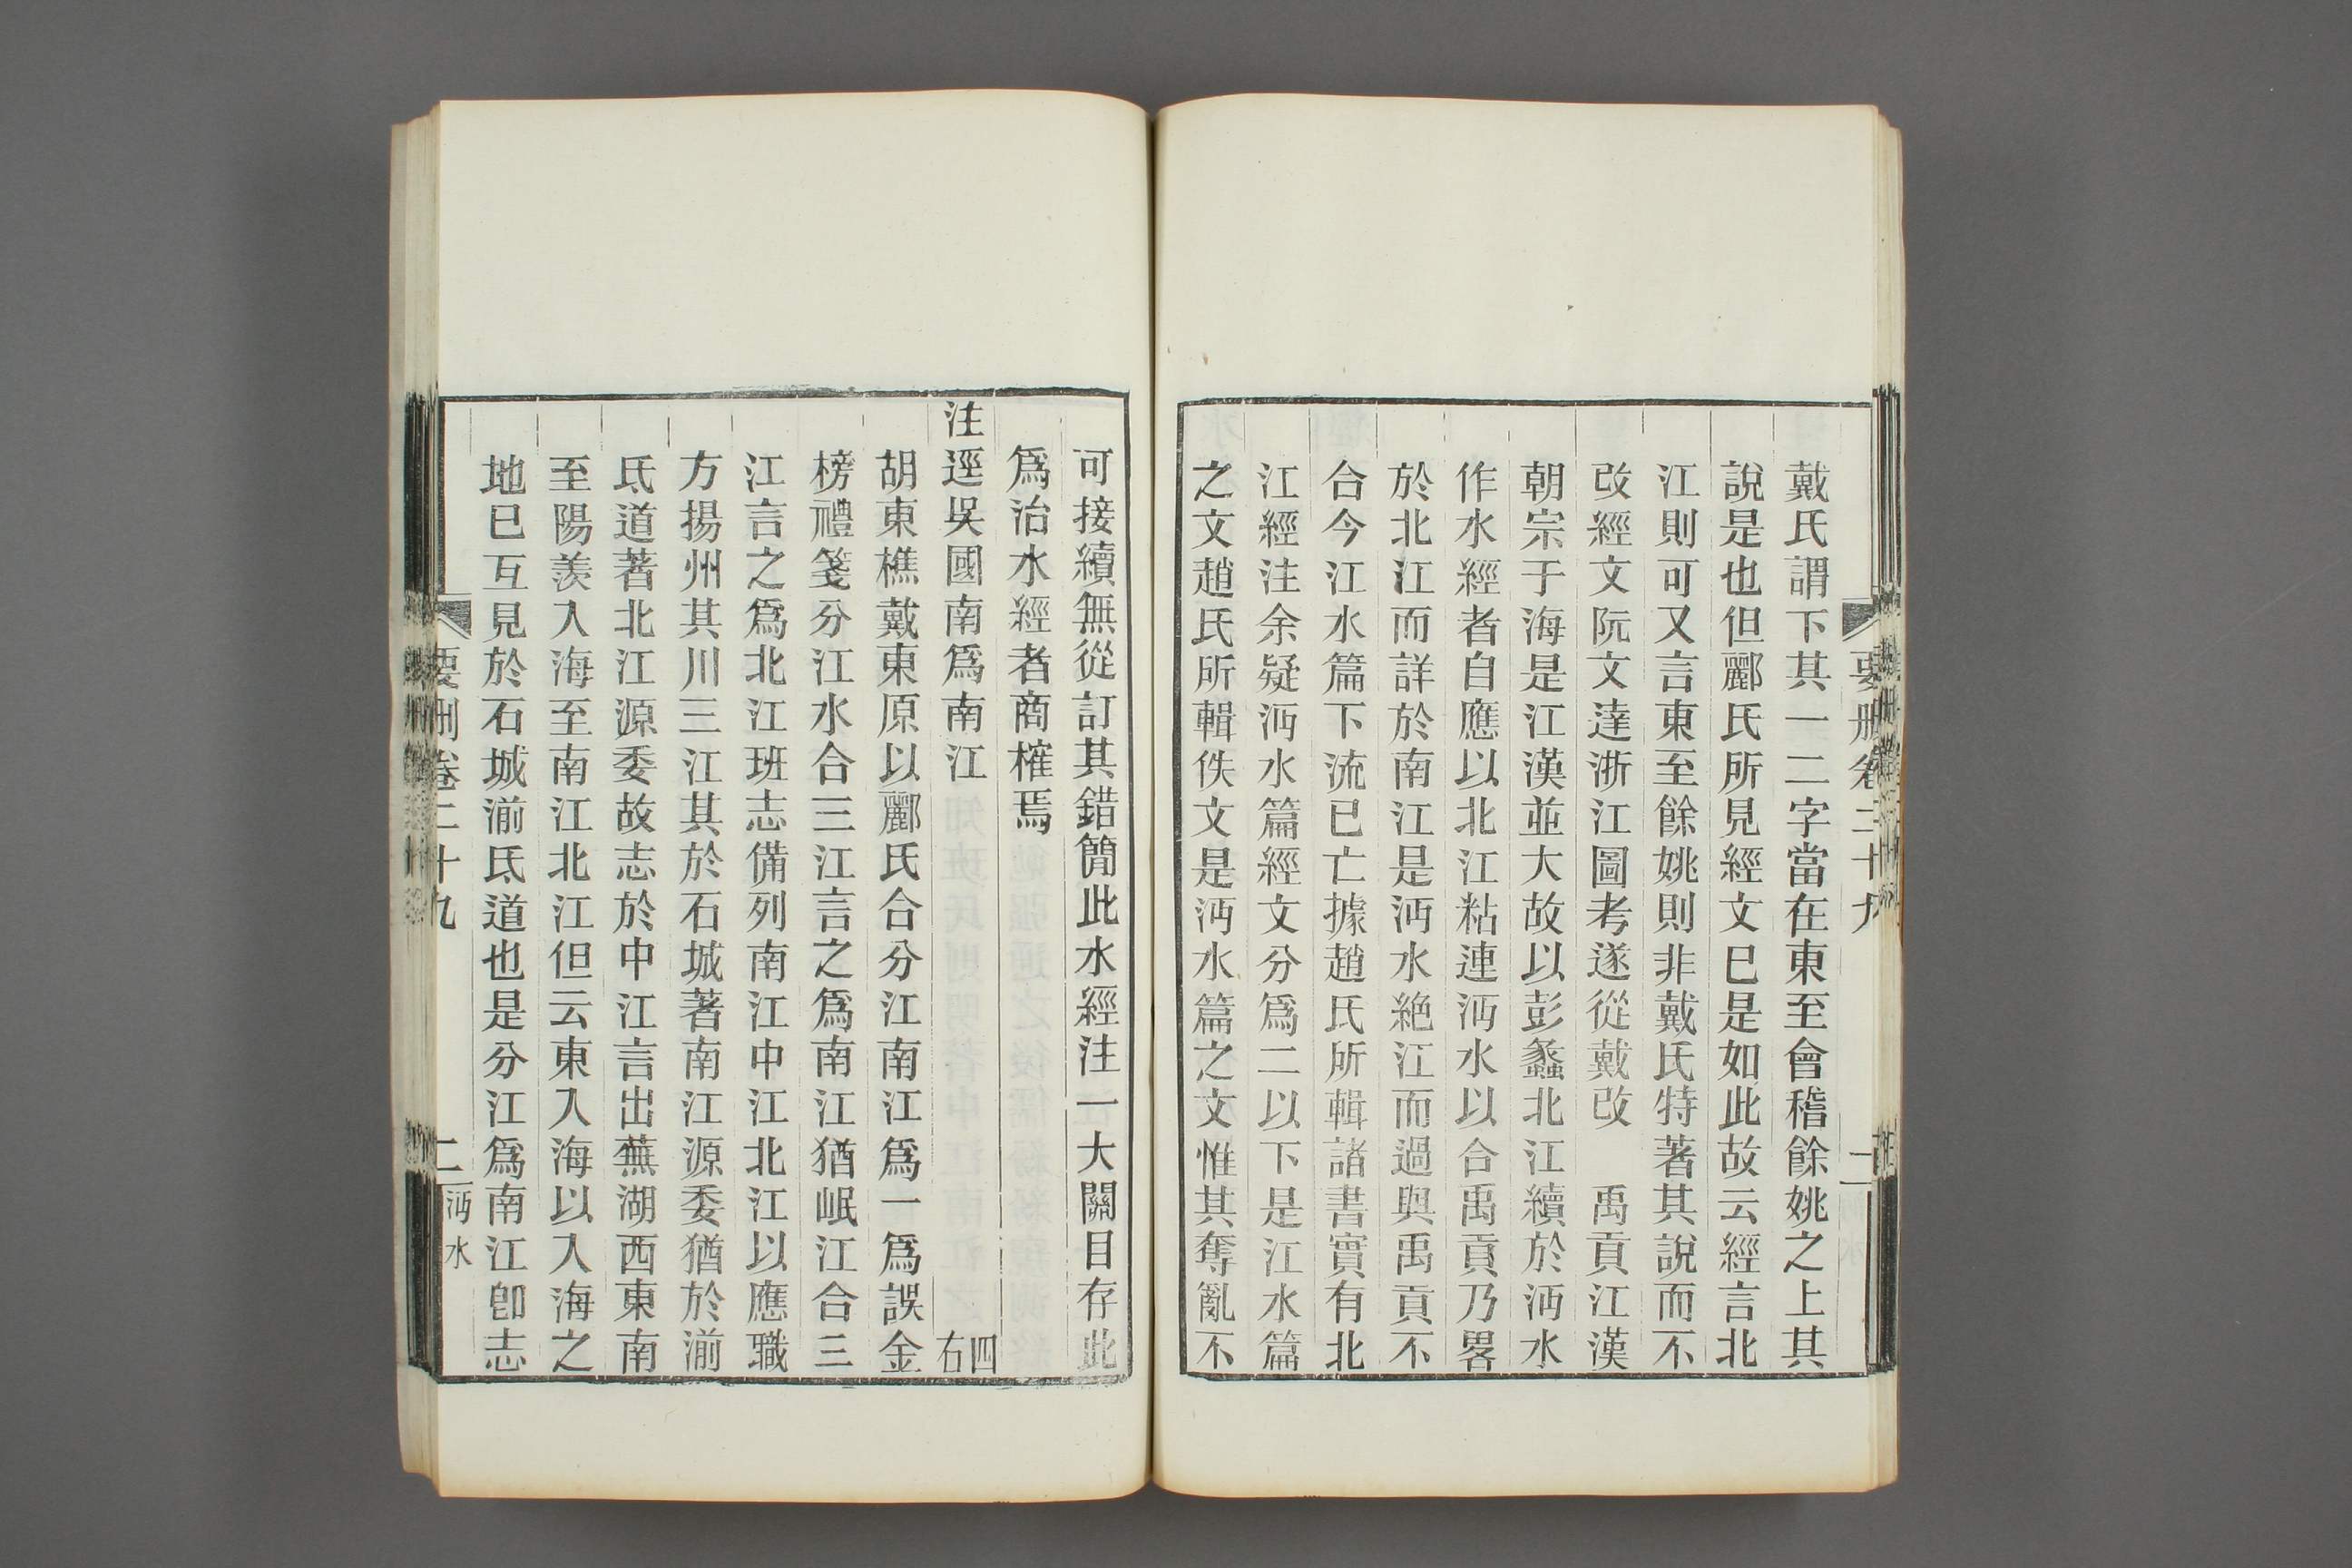 戴氏謂下其一二字當在東至會稽餘姚之上其
說是也但酈氏所見經文已是如此故云經言北
江則可又言東至餘姚則非戴氏特著其說而不
改經文阮文達浙江圖考遂從戴改　禹貢江漢
朝宗于海是江漢並大故以彭蠡北江續於沔水
作水經者自應以北江粘連沔水以合禹貢乃畧
於北江而詳於南江是沔水絶江而過與禹貢不
合今江水篇下流已亡據趙氏所輯諸書實有北
江經注余疑沔水篇經文分為二以下是江水篇
之文趙氏所輯佚文是沔水篇之文惟其奪亂不
可接續無從訂其錯簡此水經注一大關目存此
爲治水經者商榷焉
注逕吳國南爲南江　四右
胡東樵戴東原以酈氏合分江南江爲一爲誤金
榜禮箋分江水合三江言之爲南江猶岷江合三
江言之爲北江班志備列南江中江北江以應職
方揚州其川三江其於石城著南江源委猶於湔
氐道著北江源委故志於中江言出蕪湖西東南
至陽羨入海至南江北江但云東入海以入海之
地已互見於石城湔氐道也是分江爲南江卽志
要刪卷二十九　二　沔水